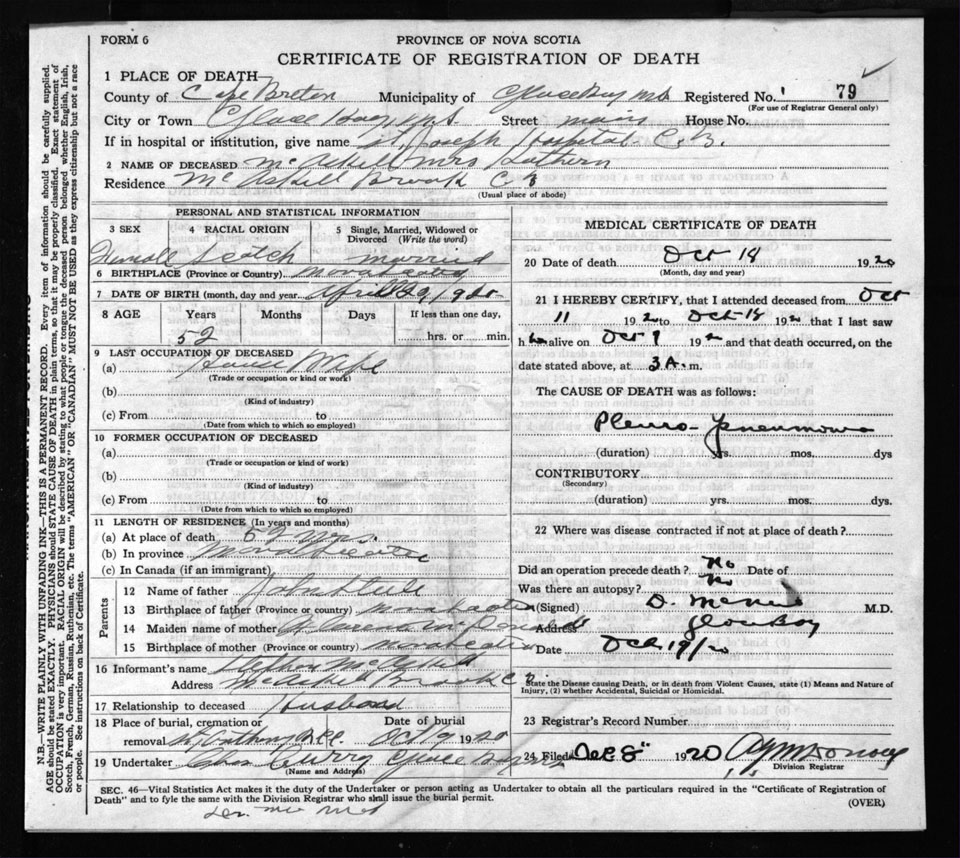 FORM 6
PROVINCE OF NOVA SCOTIA
CERTIFICATE OF REGISTRATION OF DEATH
1 PLACE OF DEATH—
County of Cape Breton Municipality of Glace Bay Registered No. 79
(For use of Registrar General only)
City or Town Glace Bay Street main House No.
If in hospital or institution, give name St. Joseph Hospital C.B.
2 NAME OF DECEASED McAskill Mrs
Residence McAskill Brook C B
(Usual place of abode)
PERSONAL AND STATISTICAL INFORMATION
3 SEX 4 RACIAL ORIGIN 5 Single, Married, Widowed or Divorced (Write the word)
Female Scotch married
6 BIRTHPLACE (Province or Country) Nova Scotia
7 DATE OF BIRTH (month, day and year) April 29/1920
8 AGE Years Months Days If less than one day,
52 hrs. or min.
9 LAST OCCUPATION OF DECEASED
(a) House Wife
(Trade or occupation or kind or work)
(b)
(Kind of industry)
(c) From to
(Date from which to which so employed)
10 FORMER OCCUPATION OF DECEASED
(a)
(Trade or occupation or kind of work)
(b)
(Kind of industry)
(c) From to
(Date from which to which so employed)
11 LENGTH OF RESIDENCE (In years and months)
(a) At place of death 52 yrs.
(b) In province Nova Scotia
(c) In Canada (if an immigrant)
Parents
12 Name of father John
13 Birthplace of father (Province or country) Nova Scotia
14 Maiden name of mother McDonald
15 Birthplace of mother (Province or country) Nova Scotia
16 Informant's name McAskill
Address McAskill Brook C B
17 Relationship to deceased Husband
18 Place of burial, cremation or Date of burial
removal St Anthony Oct 19 1920
19 Undertaker Curry Glace Bay
(Name and Address)
MEDICAL CERTIFICATE OF DEATH
20 Date of death Oct 18 1920
(Month, day and year)
21 I HEREBY CERTIFY, that I attended deceased from Oct
11 1920 to Oct 18 1920 that I last saw
her alive on Oct 1920 and that death occurred, on the
date stated above, at 3 A. m.
The CAUSE OF DEATH was as follows:
Pleuro-Pneumonia
(duration) yrs. mos. dys
CONTRIBUTORY
(Secondary)
(duration) yrs. mos. dys.
22 Where was disease contracted if not at place of death?
Did an operation precede death? No Date of
Was there an autopsy? No
(Signed) D. McNeil M.D.
Address Glace Bay
Date Oct 19/20
State the Disease causing Death, or in death from Violent Causes, state (1) Means and Nature of Injury, (2) whether Accidental, Suicidal or Homicidal.
23 Registrar's Record Number
24 Filed 8 1920
Division Registrar
SEC. 46—Vital Statistics Act makes it the duty of the Undertaker or person acting as Undertaker to obtain all the particulars required in the "Certificate of Registration of
Death" and to fyle the same with the Division Registrar who shall issue the burial permit.
(OVER)
N.B.—WRITE PLAINLY WITH UNFADING INK—THIS IS A PERMANENT RECORD. Every item of information should be carefully supplied.
AGE should be stated EXACTLY. PHYSICIANS should STATE CAUSE OF DEATH in plain terms, so that it may be properly classified. Exact statement of
OCCUPATION is very important. RACIAL ORIGIN will be described by stating to what people or tongue the deceased person belonged whether English, Irish,
Scotch, French, German, Russian, Ruthenian, etc. The terms "AMERICAN" OR "CANADIAN" MUST NOT BE USED as they express citizenship but not a race
or people. See instructions on back of Certificate.